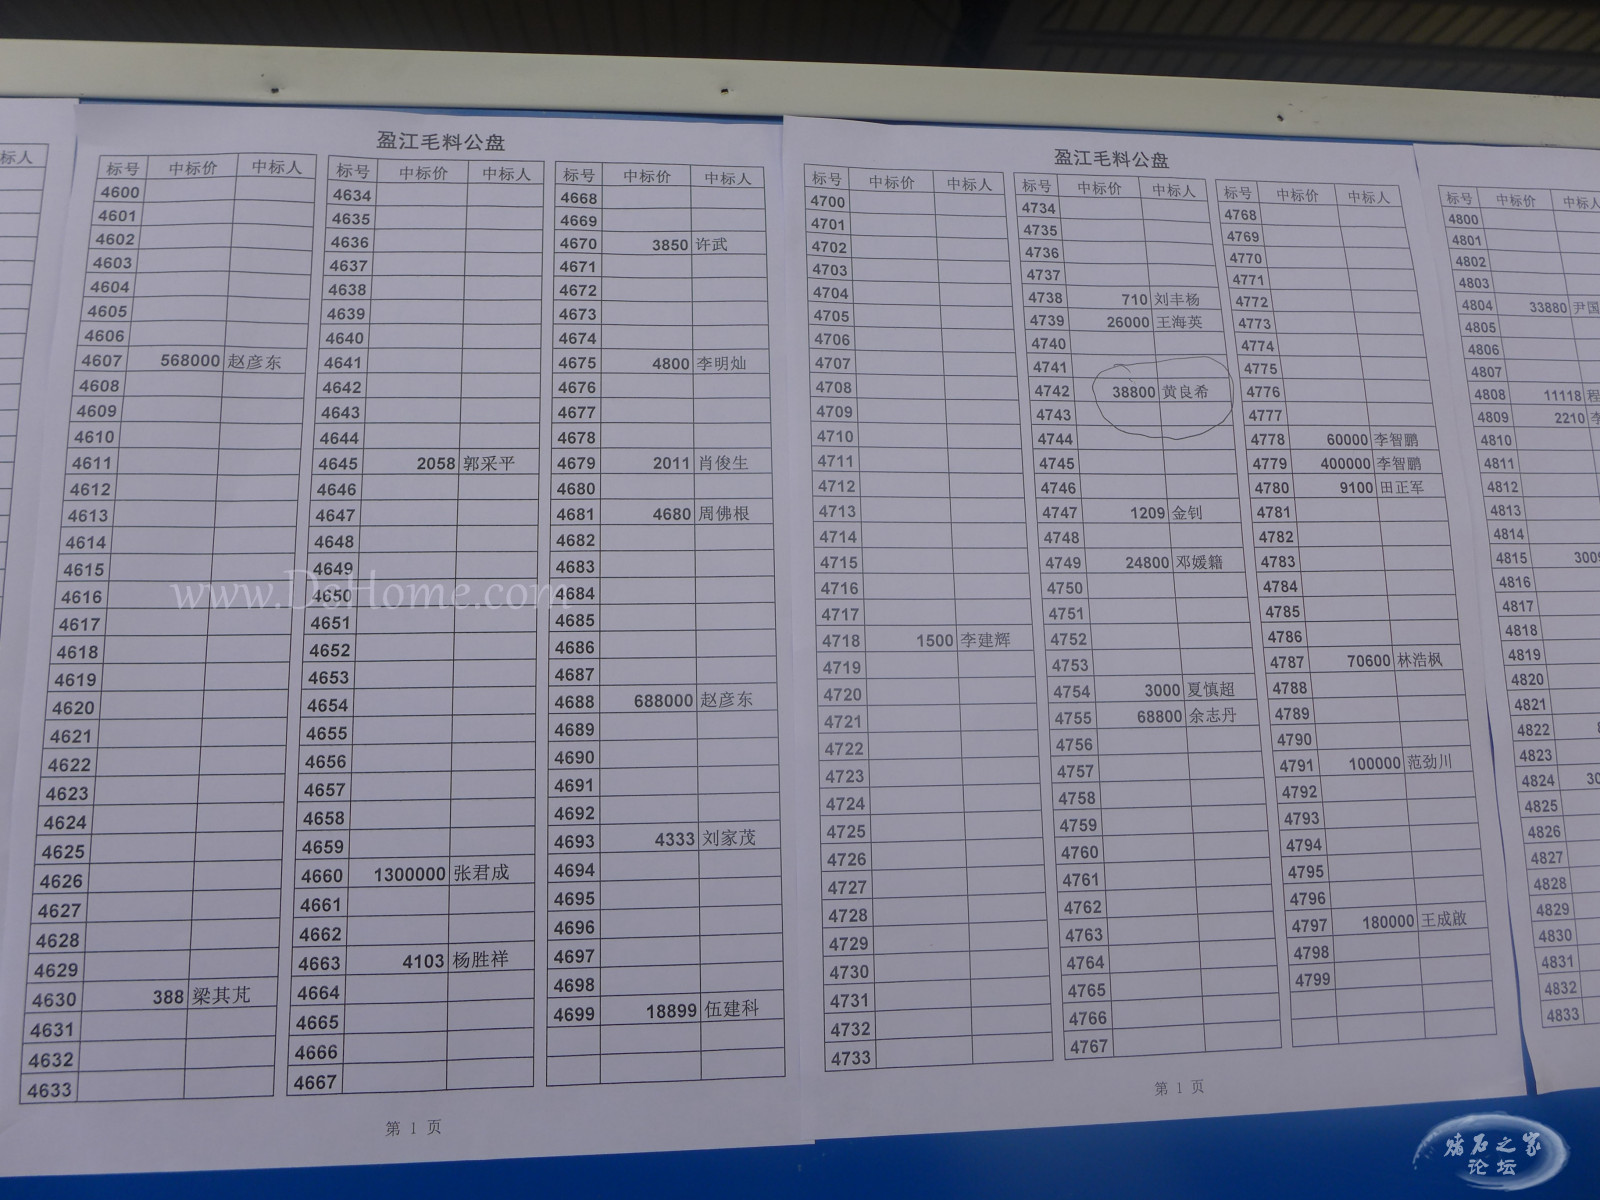 标人
盈江毛料公盘
标号 中标价 中标人
4600
4601
4602
4603
4604
4605
4606
4607 568000 赵彦东
4608
4609
4610
4611
4612
4613
4614
4615
4616
4617
4618
4619
4620
4621
4622
4623
4624
4625
4626
4627
4628
4629
4630 388 梁其芃
4631
4632
4633
标号 中标价 中标人
4634
4635
4636
4637
4638
4639
4640
4641
4642
4643
4644
4645 2058 郭采平
4646
4647
4648
4649
4650
4651
4652
4653
4654
4655
4656
4657
4658
4659
4660 1300000 张君成
4661
4662
4663 4103 杨胜祥
4664
4665
4666
4667
标号 中标价 中标人
4668
4669
4670 3850 许武
4671
4672
4673
4674
4675 4800 李明灿
4676
4677
4678
4679 2011 肖俊生
4680
4681 4680 周佛根
4682
4683
4684
4685
4686
4687
4688 688000 赵彦东
4689
4690
4691
4692
4693 4333 刘家茂
4694
4695
4696
4697
4698
4699 18899 伍建科
第 1 页
盈江毛料公盘
标号 中标价 中标人
4700
4701
4702
4703
4704
4705
4706
4707
4708
4709
4710
4711
4712
4713
4714
4715
4716
4717
4718 1500 李建辉
4719
4720
4721
4722
4723
4724
4725
4726
4727
4728
4729
4730
4731
4732
4733
标号 中标价 中标人
4734
4735
4736
4737
4738 710 刘丰杨
4739 26000 王海英
4740
4741
4742 38800 黄良希
4743
4744
4745
4746
4747 1209 金钊
4748
4749 24800 邓媛籍
4750
4751
4752
4753
4754 3000 夏慎超
4755 68800 余志丹
4756
4757
4758
4759
4760
4761
4762
4763
4764
4765
4766
4767
标号 中标价 中标人
4768
4769
4770
4771
4772
4773
4774
4775
4776
4777
4778 60000 李智鹏
4779 400000 李智鹏
4780 9100 田正军
4781
4782
4783
4784
4785
4786
4787 70600 林浩枫
4788
4789
4790
4791 100000 范劲川
4792
4793
4794
4795
4796
4797 180000 王成啟
4798
4799
第 1 页
标号 中标价 中标人
4800
4801
4802
4803
4804 33880 尹国
4805
4806
4807
4808 11118 程
4809 2210 李
4810
4811
4812
4813
4814
4815 3009
4816
4817
4818
4819
4820
4821
4822
4823
4824 30
4825
4826
4827
4828
4829
4830
4831
4832
4833
www.DoHome.com
赌石之家
论坛